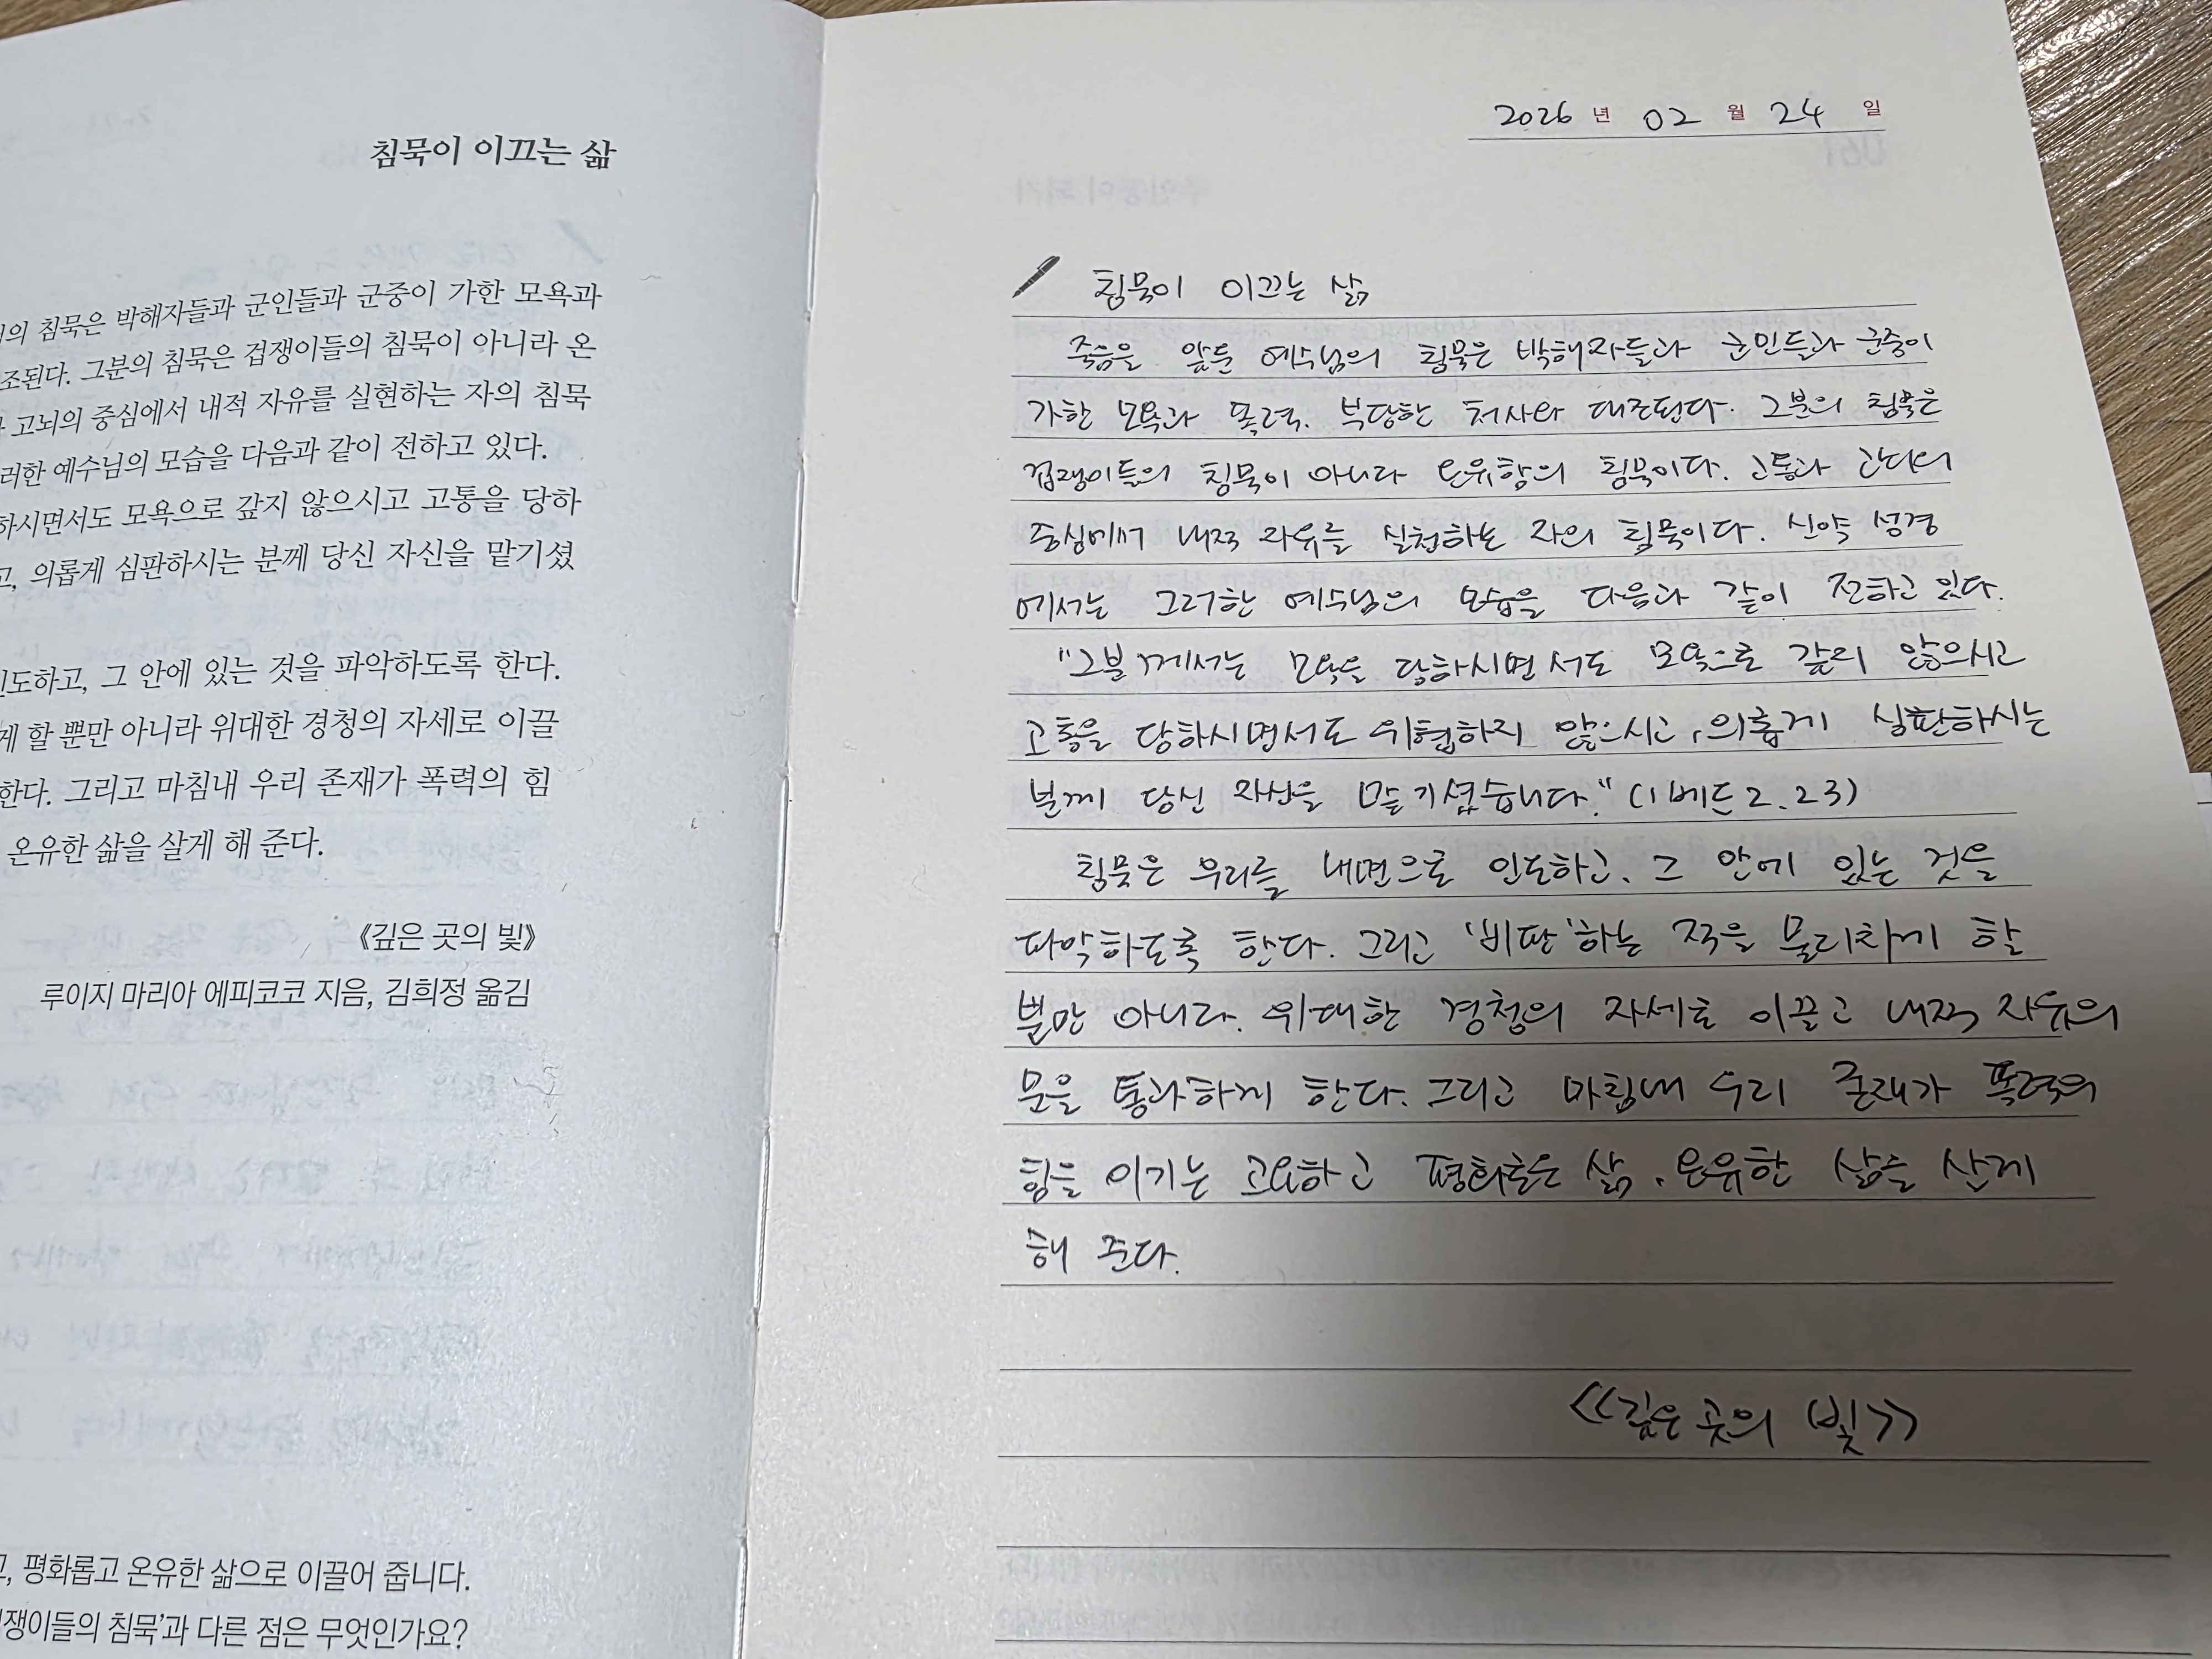 침묵이 이끄는 삶
의 침묵은 박해자들과 군인들과 군중이 가한 모욕과
조된다. 그분의 침묵은 겁쟁이들의 침묵이 아니라 온
고뇌의 중심에서 내적 자유를 실현하는 자의 침묵
러한 예수님의 모습을 다음과 같이 전하고 있다.
하시면서도 모욕으로 갚지 않으시고 고통을 당하
고, 의롭게 심판하시는 분께 당신 자신을 맡기셨
인도하고, 그 안에 있는 것을 파악하도록 한다.
게 할 뿐만 아니라 위대한 경청의 자세로 이끌
한다. 그리고 마침내 우리 존재가 폭력의 힘
온유한 삶을 살게 해 준다.
《깊은 곳의 빛》
루이지 마리아 에피코코 지음, 김희정 옮김
고, 평화롭고 온유한 삶으로 이끌어 줍니다.
쟁이들의 침묵'과 다른 점은 무엇인가요?
2026 년 02 월 24 일
침묵이 이끄는 삶
죽음을 앞둔 예수님의 침묵은 박해자들과 군인들과 군중이
가한 모욕과 폭력, 부당한 처사와 대조된다. 그분의 침묵은
겁쟁이들의 침묵이 아니라 온유함의 침묵이다. 고통과
중심에서 내적 자유를 실천하는 자의 침묵이다. 신약 성경
에서는 그러한 예수님의 모습을 다음과 같이 전하고 있다.
"그분께서는 모욕을 당하시면서도 모욕으로 갚지 않으시고
고통을 당하시면서도 위협하지 않으시고, 의롭게 심판하시는
분께 당신 자신을 맡기셨습니다." (1베드 2,23)
침묵은 우리를 내면으로 인도하고, 그 안에 있는 것을
파악하도록 한다. 그리고 '비판'하는 적을 물리치게 할
뿐만 아니라, 위대한 경청의 자세로 이끌고 내적 자유의
문을 통과하게 한다. 그리고 마침내 우리 존재가 폭력의
힘을 이기는 고요하고 평화로운 삶, 온유한 삶을 살게
해 준다.
<<깊은 곳의 빛>>